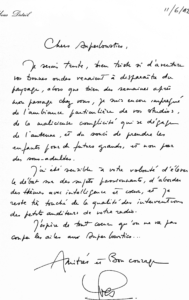 11/6/02
Chers Superloustics,
Je serai triste, bien triste si d'aventure
vos bonnes ondes venaient à disparaître du
paysage, alors que bien des semaines après
mon passage chez vous, je suis encore imprégné
de l'ambiance particulière de vos studios,
de la malicieuse complicité qui se dégage
de l'antenne, et du souci de prendre les
enfants pour de futurs grands, et non pas
des demi-adultes.
J'ai été sensible à votre volonté d'élever
le débat sur des sujets passionnants, d'aborder
des thèmes avec intelligence et cœur, et je
reste touché de la qualité des interventions
des petits auditeurs de votre radio.
J'espère de tout cœur qu'on ne va pas
couper les ailes aux Superloustics.
Amitiés et Bon courage
Yves